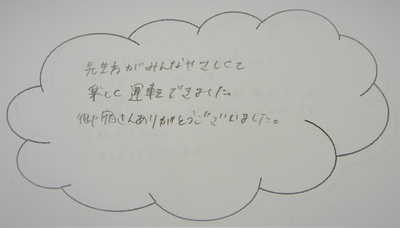 先生方がみんなやさしくて
楽しく運転できました。
さんありがとうございました。